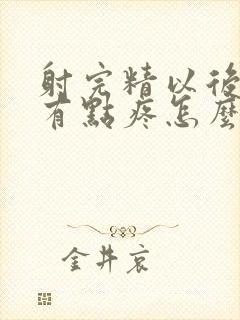 射完精以後
有點疼怎麼
金井哀